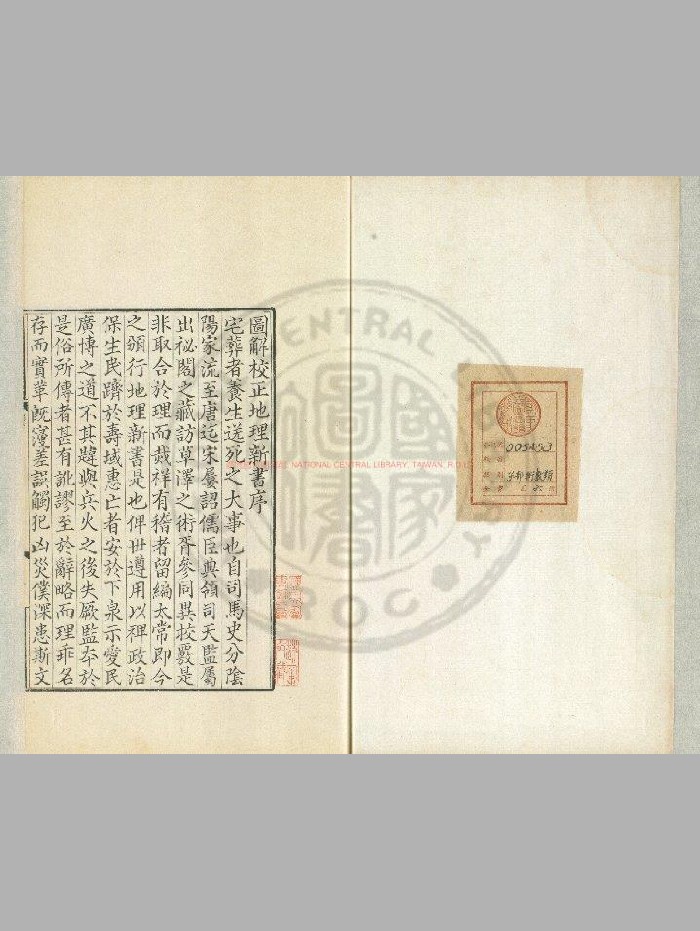 圖解校正地理新書序
宅葬者養生送死之大事也自司馬史分陰
陽家流至唐迄宋屢詔儒臣典領司天監屬
出秘閣之藏訪草澤之術胥參同異挍覈是
非取合於理而烖祥有稽者留編太常即今
之頒行地理新書是也俾世遵用以禆政治
保生民躋於壽域惠亡者安於下泉示愛民
廣博之道不其韙與兵火之後失厥監夲於
是俗所傳者甚有訛謬至於辭略而理乖名
存而實革旣寖差誤觸犯凶災僕深患斯文
CENTRAL
NATIONAL CENTRAL LIBRARY, TAIWAN, R.O.C
ROC